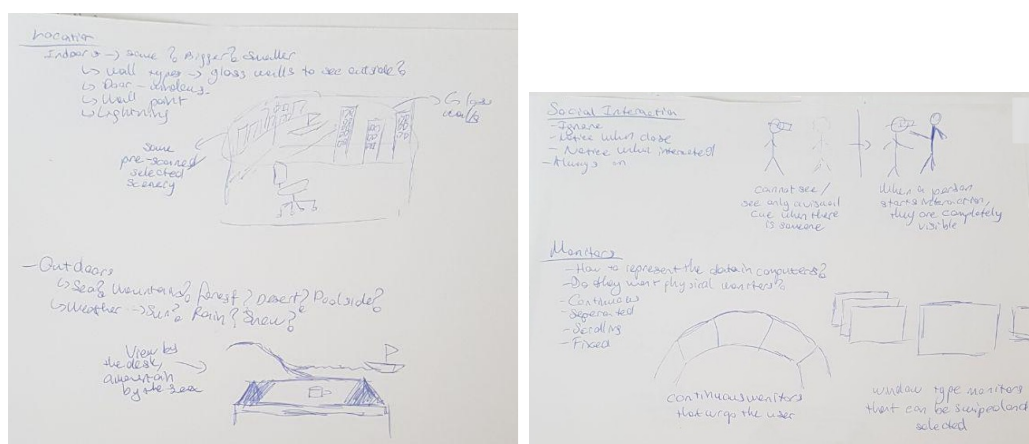 Location
Indoors → Same? Bigger? Smaller
↳ Wall types → glass walls to see outside?
↳ Door - windows
↳ Wall paint
↳ Lightning
↳ glass walls
some
pre-scanned
selected
scenery
- Outdoors
↳ Sea? Mountains? Forest? Desert? Poolside?
↳ Weather → Sun? Rain? Snow?
View by
the desk,
a mountain
by the sea
Social Interaction
- Ignore
- Notice when close
- Notice when interacted
- Always on
cannot see/
see only a visual
cue when there
is someone
When a person
starts interaction,
they are completely
visible
Monitors
- How to represent the data in computers?
- Do they want physical monitors?
- Continuous
- Separated
- Scrolling
- Fixed
continuous monitors
that wrap the user
window type monitors
that can be swiped and
selected